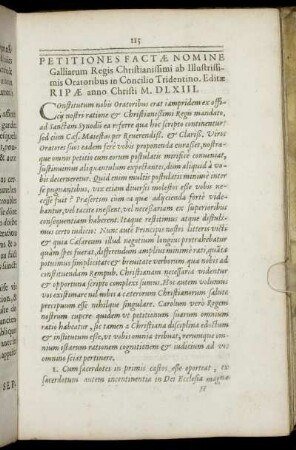 115
PETITIONES FACTÆ NOMINE
Galliarum Regis Christianissimi ab Illustrissi-
mis Oratoribus in Concilio Tridentino. Editæ
RIPÆ anno Christi M. DLXIII.
Constitutum nobis Oratoribus erat iampridem ex offi-
cij nostri ratione & Christianissimi Regis mandato,
ad Sanctam Synodū ea referre qua hoc scripto continentur:
sed dum Cæs. Maiestas per Reverendiss. & Clariss. Viros
Oratores suos eadem serè proponenda curasset, nostra-
que omnia petitio cum eorum postulatis mirificè conveniat,
iustissimum aliquantulum expectantes, dum aliquid à vobis
decerneretur. Quid enim multis postulatis minimè inter
se pugnantibus, vix etiam diversis molestos esse vobis neces-
se fuit? Præsertim cum ea quæ adijcienda fortè videban-
tur, vel tacitè præsenti, vel necessariam ex superioribus
consequentiam haberent. Itaque restitimus atque destitu-
imus certo iudicio: Nunc autē Principis nostri litteris victi
& quia Cæsareum illud negotium longius protrahebatur
quàm spes fuerat, differendum amplius minimè ratis, quāta
potuimus simplicitate & brevitate verborum, qua nobis ad
constituendam Rempub. Christianam necessaria videntur
& opportuna scripto complexi sumus. Hoc autem volumus
vos existimare nil nobis à ceterorum Christianorum salute
præcipuum esse nihilque singulare. Carolum verò Regem
nostrum cupere quidem ut petitionum suarum omnium
ratio habeatur, sic tamen a Christiana disciplina edoctum
& institutum esse, ut vobis omnia tribuat, rerumque om-
nium istarum rationem cognitionem & iudicium ad vos
omnino sciat pertinere.
1. Cum sacerdotes in primis castos esse oporteat, ex
sacerdotum autem incontinentia in Dei Ecclesia magnæ
H
SEP.